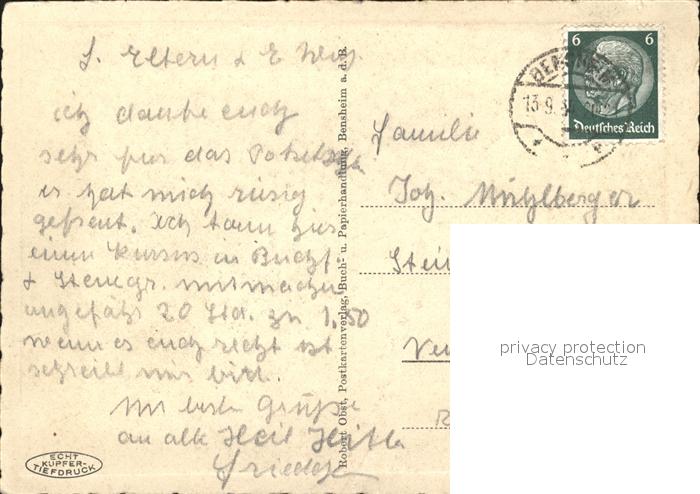 L. Eltern & E
ich danke euch
sehr für das
es hat mich riesig
gefreut. Ich kann hier
einen Kursus in Buchf
& Stenogr. mitmachen
ungefähr 20 Std. zu 1.50
wenn es euch recht ist
schreibt mir bitt.
Mit besten Grüße
an alle Heil Hitle
ECHT
KUPFER-
TIEFDRUCK
Robert Obst, Postkartenverlag, Buch- u. Papierhandlung, Bensheim a. d. B.
6 6
Deutsches Reich
13.9.3
Familie
Joh. Mühlberger
Stei
privacy protection
Datenschutz